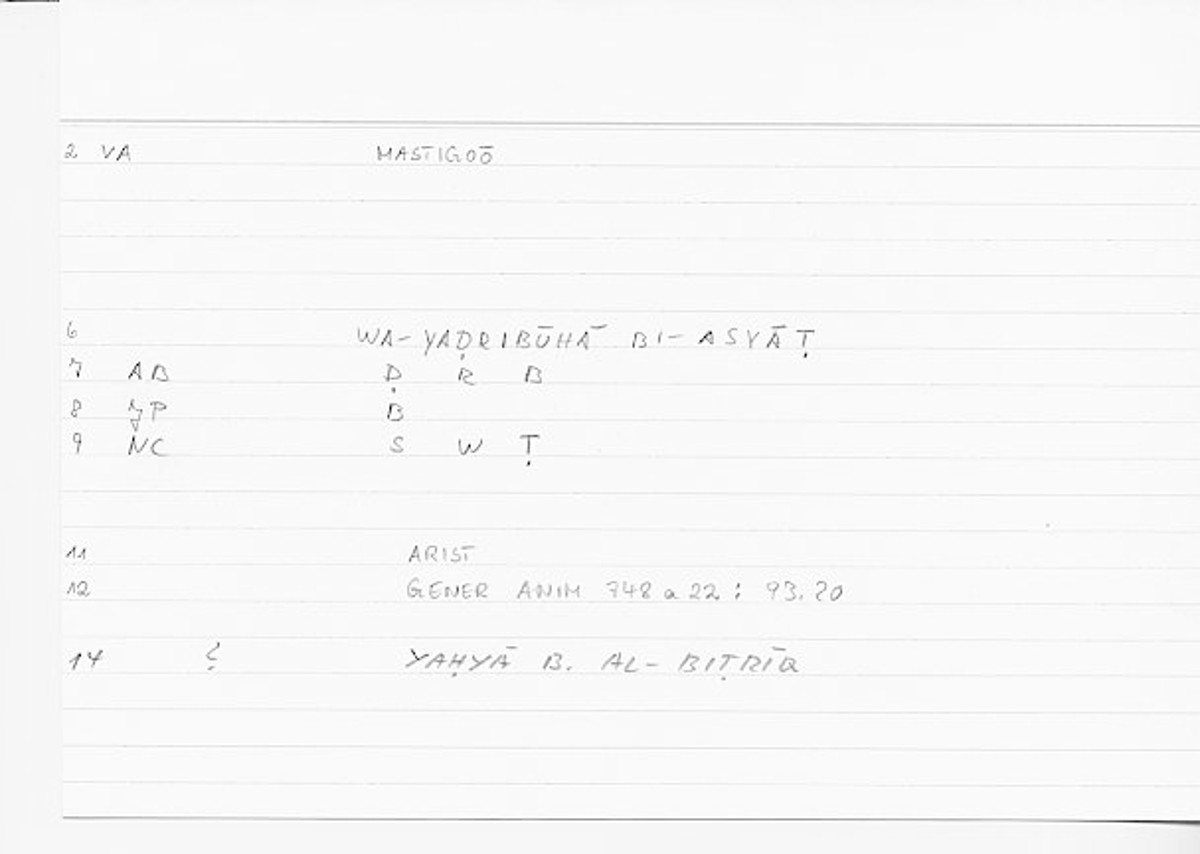 2 VA MASTIGOŌ
6 WA-YAḌRIBŪHĀ BI-ASYĀṬ
7 AB Ḍ R B
8 B
9 NC S W Ṭ
11 ARIST
12 GENER ANIM 748 a 22 : 93.20
14 YAḤYĀ B. AL-BIṬRĪQ